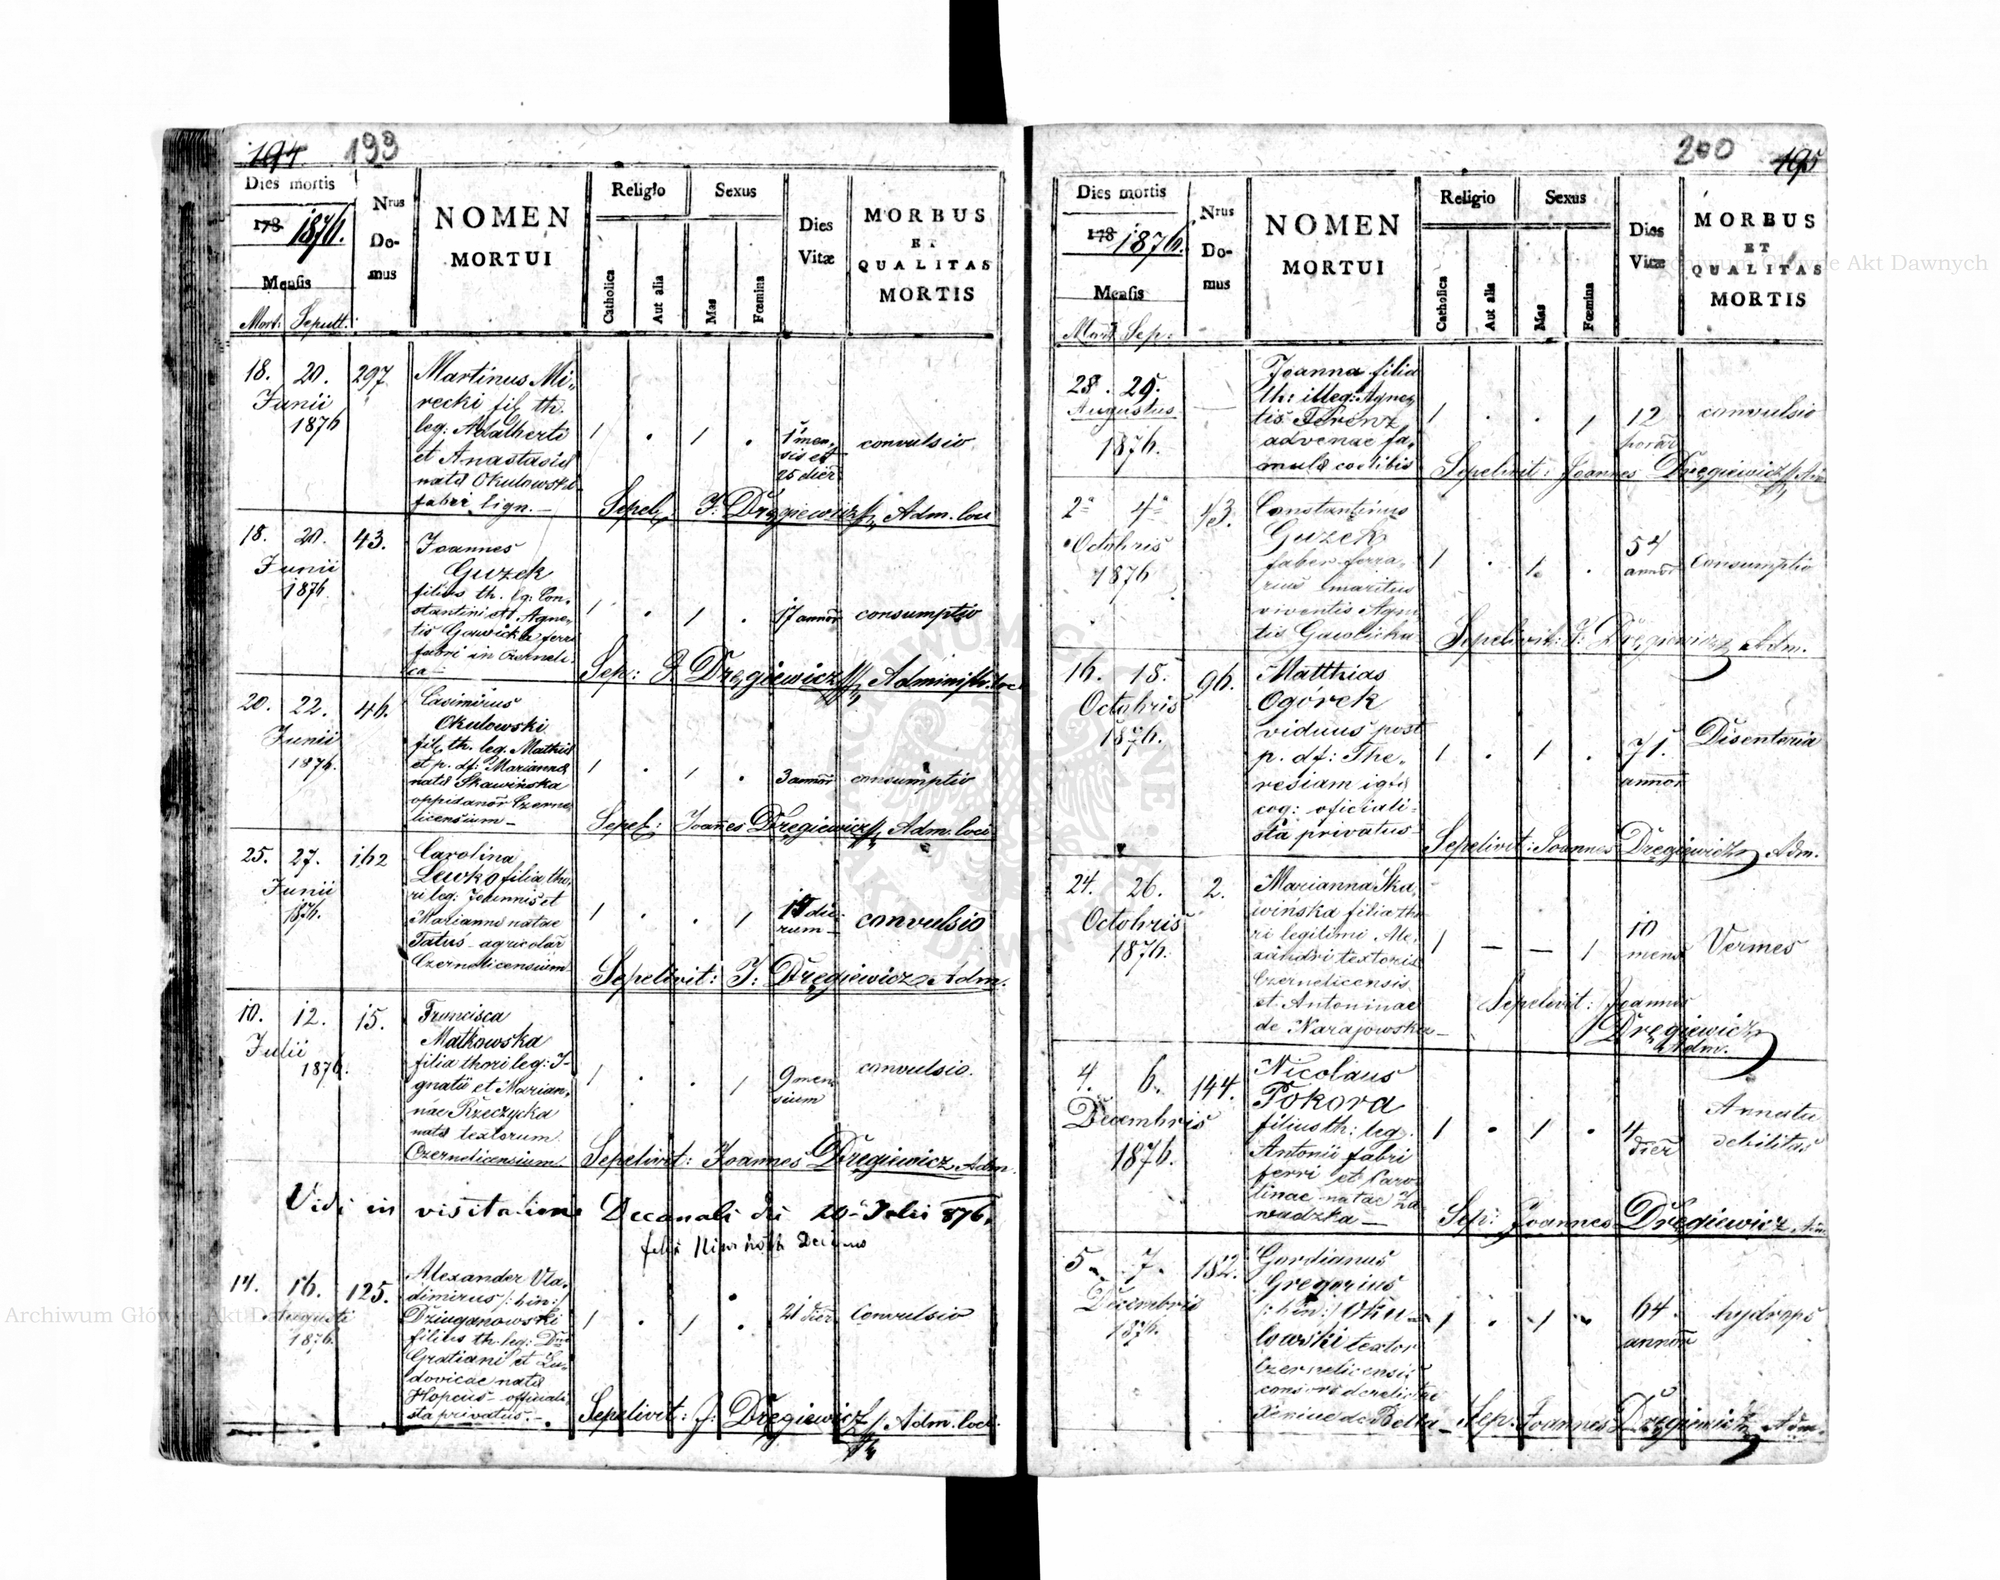 194 199
Dies mortis
178 1876.
Mensis
Mort: Sepult:
Nrus
Do-
mus
NOMEN
MORTUI
Religio
Catholica
Aut alia
Sexus
Mas
Fœmina
Dies
Vitæ
MORBUS
ET
QUALITAS
MORTIS
18. 20. 297
Junii
1876
Martinus Mi-
recki fil. th.
leg: Adalberti
et Anastasiæ
natæ Okulowska
fabri lign. —
1 . 1 .
1 men-
sis et
25 dier
convulsio
Sepel. J: Dręgiewicz Adm. loci
18. 20. 43.
Junii
1876
Joannes
Guzek
filius th. leg: Con-
stantini et Agne-
tis Gawicka ferri
fabri in Czerneli-
ca —
1 . 1 .
17 annor
consumptio
Sep: J Dręgiewicz Administr. loci
20. 22. 46.
Junii
1876.
Casimirus
Okulowski
fil. th. leg. Mathiæ
et p. df: Mariannæ
natæ Skawińska
oppidanor Czerne-
licensium —
1 . 1 .
3 annor
consumptio
Sepel: Joannes Dręgiewicz Adm. loci
25. 27. 162
Junii
1876.
Carolina
Lewko filia tho-
ri leg: Joannis et
Mariannæ natae
Tatuś agricolar
Czernelicensium
1 . . 1
die-
rum —
convulsio
Sepelivit: J: Dręgiewicz Adm.
10. 12. 15.
Julii
1876.
Francisca
Matkowska
filia thori leg: I-
gnatii et Marian-
nae Rzeczycka
natæ textorum
Czernelicensium
1 . . 1
9 men
sium
convulsio.
Sepelivit: Joannes Dręgiewicz Adm.
Vidi in visitatione Decanali die 20 Julii 876.
14. 16. 125.
Augusti
1876.
Alexander Vla-
dimirus /:bin:/
Dziuganowski
filius th. leg:
Gratiani et Lu-
dovicae natæ
Hopcus officiali-
sta privatus. —
1 . 1 .
21 dier
Convulsio
Sepelivit: J: Dręgiewicz Adm. loci
200 195
Dies mortis
178 1876.
Mensis
Mort Sep:
Nrus
Do-
mus
NOMEN
MORTUI
Religio
Catholica
Aut alia
Sexus
Mas
Fœmina
Dies
Vitæ
MORBUS
ET
QUALITAS
MORTIS
28. 29.
Augustus
1876.
—
Joanna filia
th: illeg: Agne-
tis Ferenz
advenae fa-
mulæ coelibis
1 . . 1
12
horar
convulsio
Sepelivit: Joannes Dręgiewicz Adm
2a 4a 43.
Octobris
1876
Constantinus
Guzek
faber ferra-
rius maritus
viventis Agne-
tis Gawicka
1 . 1. .
54
annor
consumptio
Sepelivit: J: Dręgiewicz Adm.
16. 18. 96.
Octobris
1876.
Matthias
Ogórek
viduus post
p. df: The-
resiam igtæ
cog: oficiali-
sta privatus
1 . 1 .
71.
annor
Disenteria
Sepelivit: Joannes Dręgiewicz Adm.
24. 26. 2.
Octobris
1876.
Marianna Ska-
wińska filia tho-
ri legitimi Ale-
xandri textoris
Czernelicensis
et Antoninae
de Narajowska —
1 — — 1
10
mens
Vermes
Sepelivit: Joannes
Dręgiewicz
Adm.
4. 6. 144.
Decembris
1876.
Nicolaus
Pokora
filius th: leg.
Antonii fabri
ferri et Caro-
linae natae Za-
wadzka —
1 . 1 .
4
dier
debilitas
Sep: Joannes Dręgiewicz Adm
5. 7. 182.
Decembris
1876.
Gordianus
Gregorius
/:bin:/ Oku-
lowski textor
Czernelicensis
Xeniae de Belta
1 . 1 .
64
annor
hydrops
Sep: Joannes Dręgiewicz Adm.
Archiwum Główne Akt Dawnych
Archiwum Główne Akt Dawnych